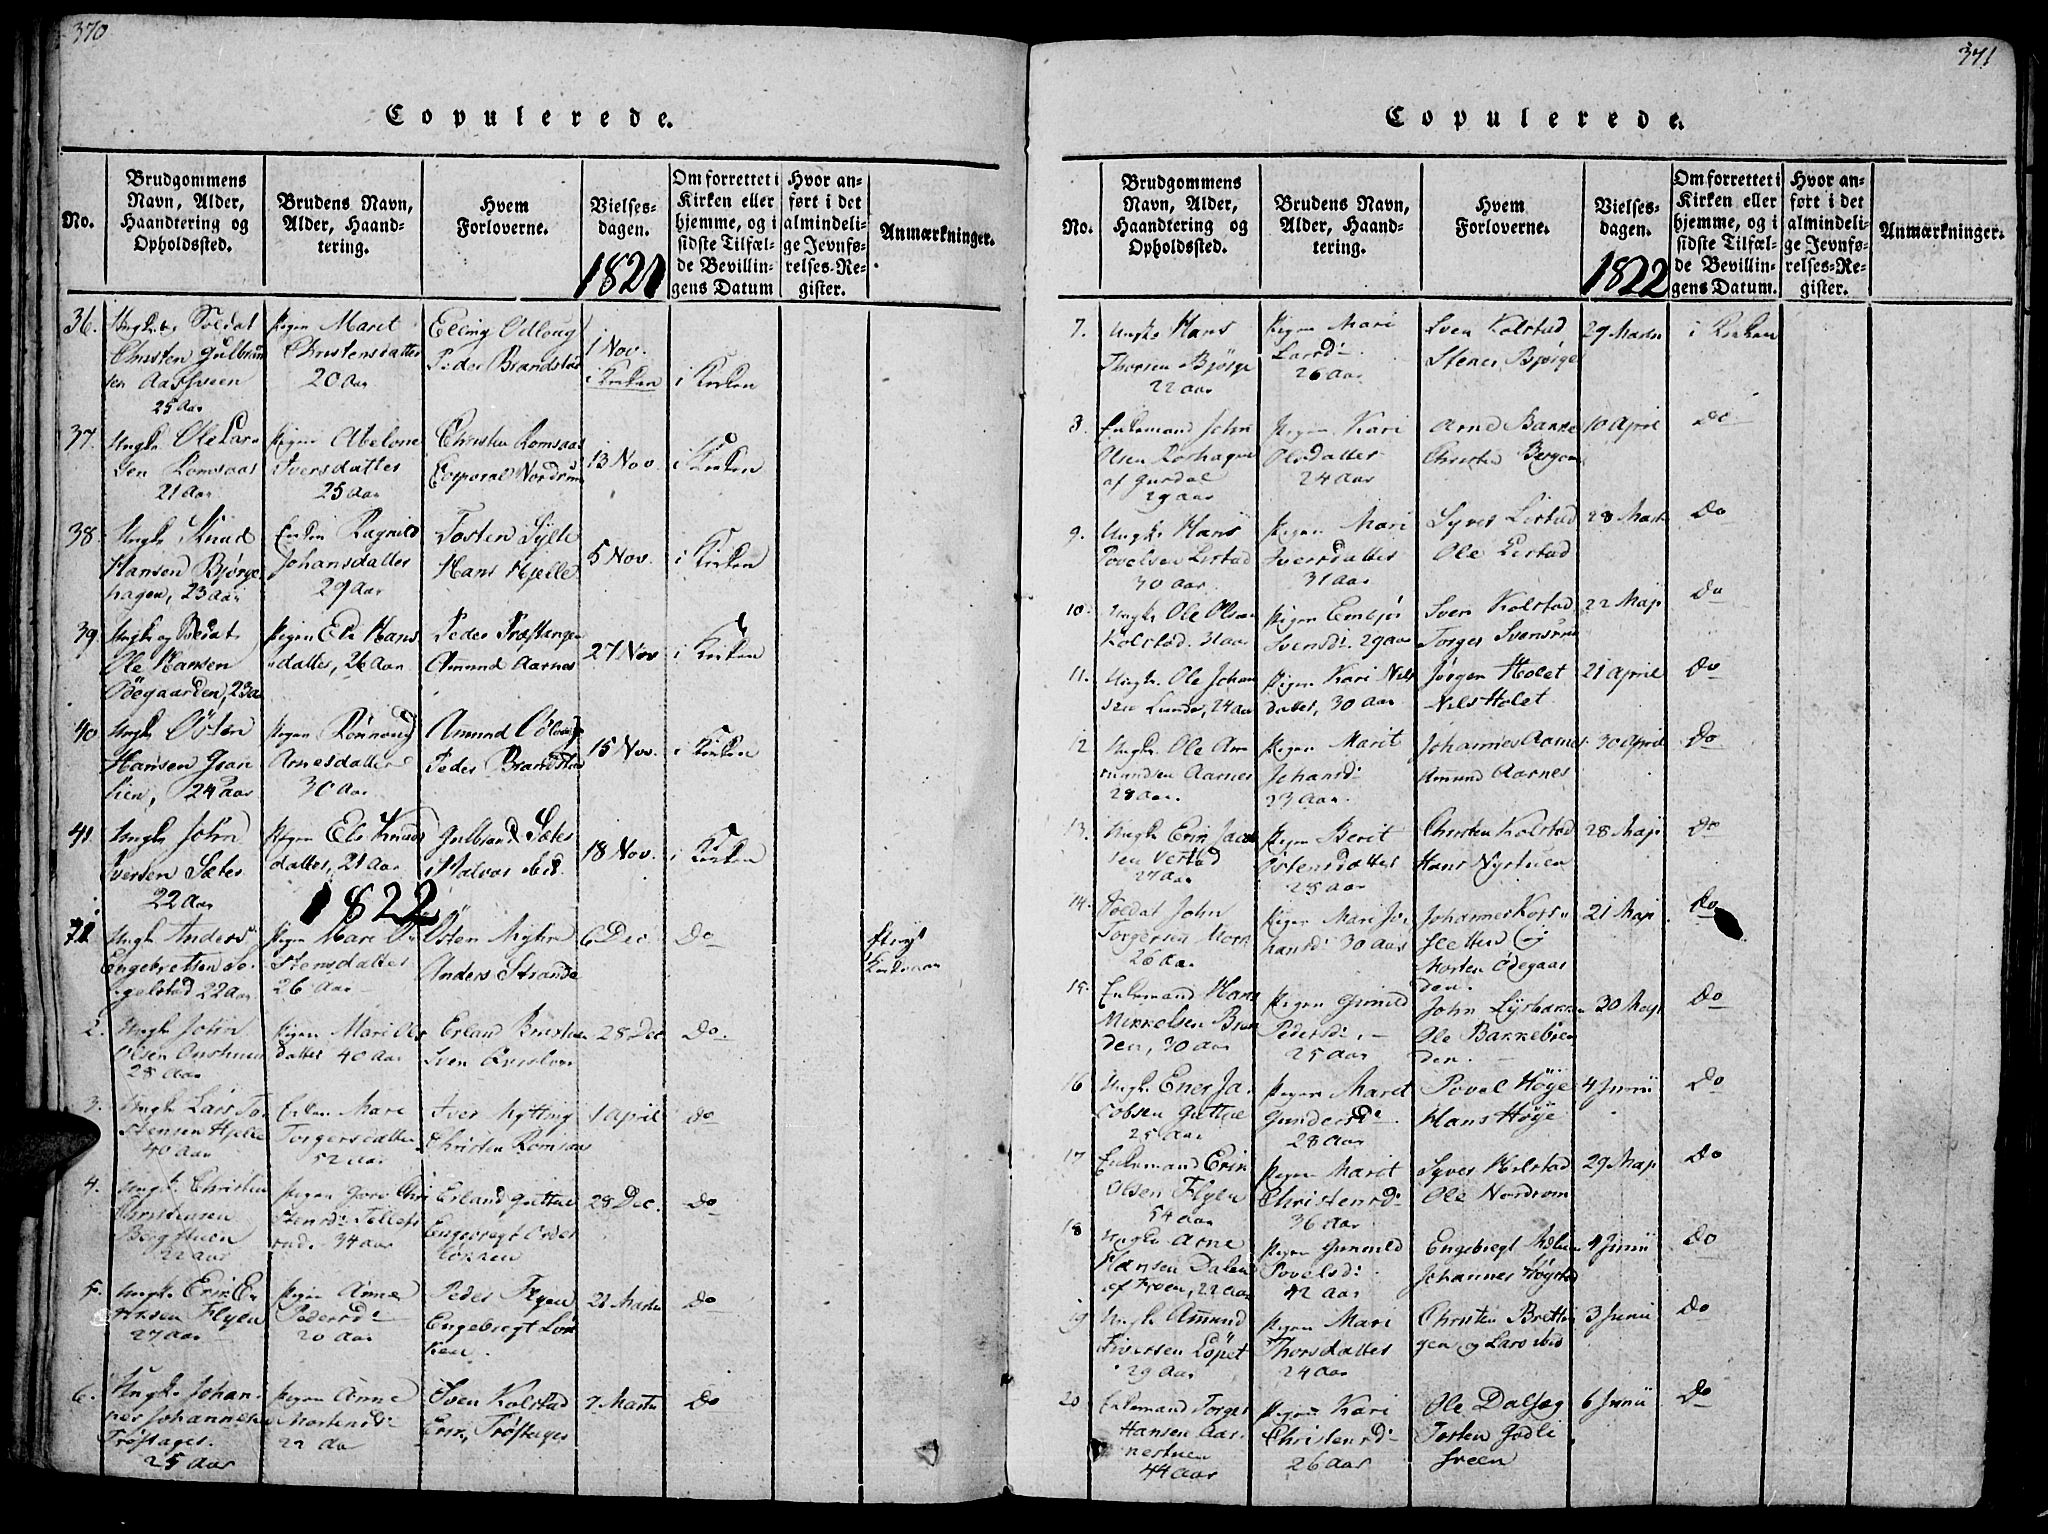 370
Copulerede.
No.
Brudgommens Navn, Alder, Haandtering og Opholdssted.
Brudens Navn, Alder, Haandtering.
Hvem Forloverne.
Vielsesdagen.
1821
Om forrettet i Kirken eller hjemme, og i sidste Tilfælde Bevillingens Datum
Hvor anført i det almindelige Jevnførelses-Register.
Anmærkninger.
36.
Ungk. og Soldat
Christen Gulbran
sen
25 Aar
Pigen Marit
Christensdatter
20 Aar
Elling Odloug
Peder Brandstad
1 Nov.
i Kirken
i Kirken
37.
Ungk. Ole Lar
sen Romsaas
21 Aar
Pigen Abelone
Iversdatter
25 Aar
Christen Romsaas
Corporal Nordrum
13 Nov.
i Kirken
38.
Ungk. Knud
Hansen Bjørge
hagen, 23 Aar
Enken Ragnild
Johansdatter
29 Aar
Tosten Sylte
Hans Hjelle
5 Nov.
i Kirken
39
Ungk. og Soldat
Ole Hansen
Odegaarden, 23 a
Pigen Eli Hans
datter, 26 Aar
Peder Præstangen
Amund Aarnes
27 Nov
i Kirken
40
Ungk. Østen
Hansen
24 Aar
Pigen Rønnoug
Arnesdatter
30 Aar
Amund Odloug
Peder Brandstad
15 Nov.
i Kirken
41
Ungk. John
Iversen Sæter
22 Aar
Pigen Eli Knuds
datter, 21 Aar
Gulbrand Sæter
Halvor ibid.
18 Nov.
i Kirken
1822
Ungk. Anders
Engebretsen
22 Aar
Pigen Mari
stensdatter
26 Aar
Østen Myhre
Anders Strande
6 Dec.
Do
2.
Ungk. John
Olsen
28 Aar
Pigen Mari Ols
datter 40 Aar
Erland
Sven
28 Dec
Do.
3.
Ungk. Lars To
stensen Hjelle
40 Aar
Enken Mari
Torgersdatter
52 Aar
Iver Myttoug
Christen Romsaas
1 April
Do
4.
Ungk. Christen
Christensen
Bergstuen
22 Aar
Pigen Goro Chri
stensd:
34 Aar
Erland
Engebregt
28 Dec.
Do
5.
Ungk. Erik
Hansen Flyen
27 Aar
Pigen Anne
Pedersd:
20 Aar
Peder Flyen
Engebregt
21 Martii
Do
6.
Ungk. Johan
nes Johannesen
Trøstager.
25 Aar
Pigen Anne
Mortensd:
22 Aar
Sven Kolstad
Erik Trøstager
7 Martii
Do
371
Copulerede.
No.
Brudgommens Navn, Alder, Haandtering og Opholdssted.
Brudens Navn, Alder, Haandtering.
Hvem Forloverne.
Vielsesdagen.
1822
Om forrettet i Kirken eller hjemme, og i sidste Tilfælde Bevillingens Datum.
Hvor anført i det almindelige Jevnførelses-Register.
Anmærkninger.
7.
Ungk. Hans
Thorsen Bjørge
22 Aar
Pigen Mari
Larsd:
26 Aar
Sven Kolstad
Stener Bjørge
29 Martii
i Kirken
8.
Enkemand John
Olsen
29 Aar
Pigen Kari
Olsdatter
24 Aar
Arne Bakke
Christen
10 April
Do
9.
Ungk. Hans
Povelsen Listad
30 Aar
Pigen Mari
Iversdatter
31 Aar
Syver Listad
Ole Listad
28 Marti
Do
10.
Ungk. Ole Olsen
Kolstad. 31 Aar
Pigen
Svensd: 29 Aar
Sven Kolstad
Torger Svensrud
22 Maji
Do
11.
Ungk. Ole Johan
sen Lunde, 24 Aar
Pigen Kari Nils
datter, 30 Aar
Jørgen Holet
Nils Holet
21 April
Do
12
Ungk. Ole Am
mundsen Aarnes
28 Aar.
Pigen Marit
Johansd:
23 Aar.
Johannes Aarnes
Amund Aarnes
30 April
Do
13.
Ungk. Erik Jacob
sen
27 Aar
Pigen Berit
Østensdatter
28 Aar
Christen Kolstad
Hans Nystuen
28 Maji
Do
14.
Soldat John
Torgersen
26 Aar
Pigen Mari Jo
hansd: 30 Aar
Johannes Kors
sletten og
Morten Ødegaar
den.
21 Maji
Do
15.
Enkemand Hans
Mikkelsen
den, 30 Aar
Pigen Gunild
Pedersd:
25 Aar
John
Ole
den.
30 Maji
Do
16
Ungk. Ener Ja
cobsen
25 Aar
Pigen Marit
Gundersd:
28 Aar
Povel Høye
Hans Høye
4 Junii
Do
17
Enkemand Erik
Olsen Flyen
54 Aar
Pigen Marit
Christensd:
36 Aar
Syver
Ole Nordrom
29 Maji
Do
18
Ungk. Arne
Hansen Dalen
af Froen, 22 Aar
Pigen Gunild
Povelsd:
42 Aar
Engebregt
Johannes Høystad
4 Junii
Do
19
Ungk. Amund
Iversen Løpet
29 Aar
Pigen Mari
Thorsdatter
24 Aar
Christen
gen og Lars ibid
3 Junii
Do
20
Enkemand Torger
Hansen Aar
nestuen
44 Aar
Pigen Kari
Christensd:
26 Aar
Ole Dalseg
Tosten Godli
sveen
6 Junii
Do